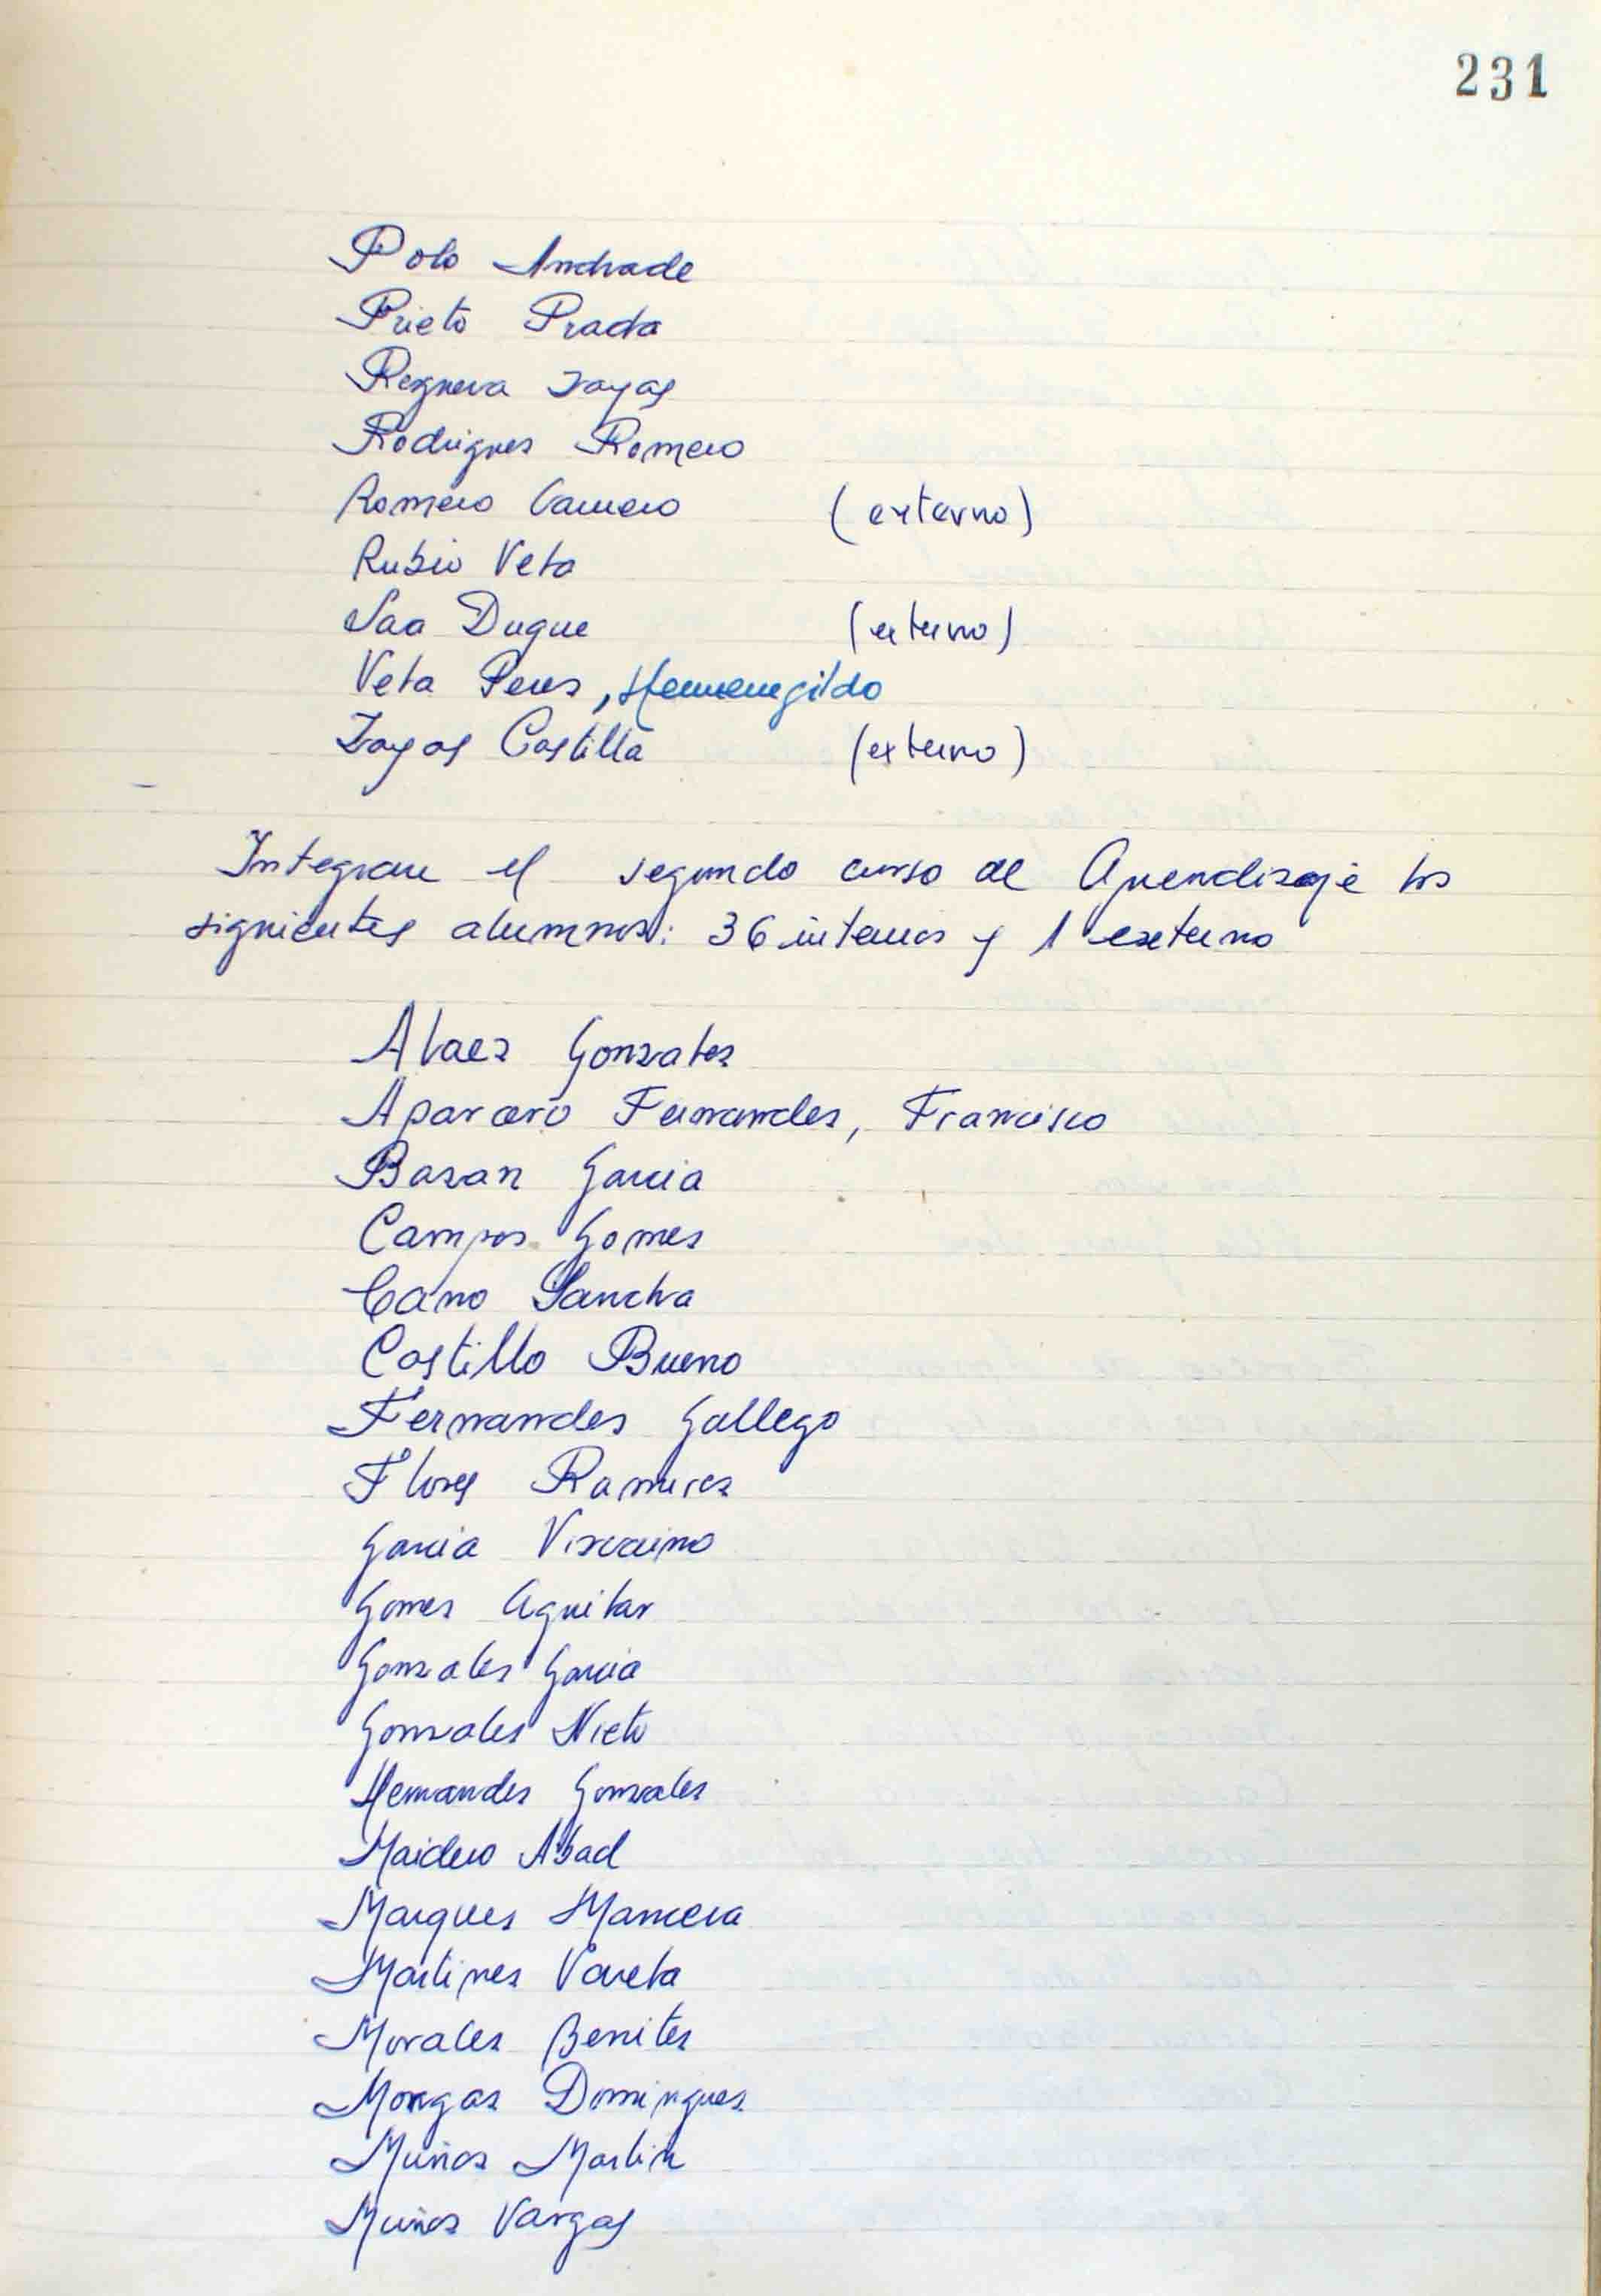 231
Polo Andrade
Prieto Prada
Reguera Zayas
Rodriguez Romero
Romero Carrero (externo)
Rubio Vela
Saa Duque (externo)
Vela Perez, Hermenegildo
Zayas Castilla (externo)
Integran el segundo curso de Aprendizaje los
siguientes alumnos: 36 internos y 1 externo
Alaez Gonzalez
Aparcero Fernandez, Francisco
Bazan Garcia
Campos Gomez
Cano Sancha
Castillo Bueno
Fernandez Gallego
Flores Ramirez
Garcia Vizcaino
Gomez Aguilar
Gonzalez Garcia
Gonzalez Nieto
Hernandez Gonzalez
Maidero Abad
Marquez Mancera
Martinez Varela
Morales Benitez
Dominguez
Muñoz Martin
Muñoz Vargas